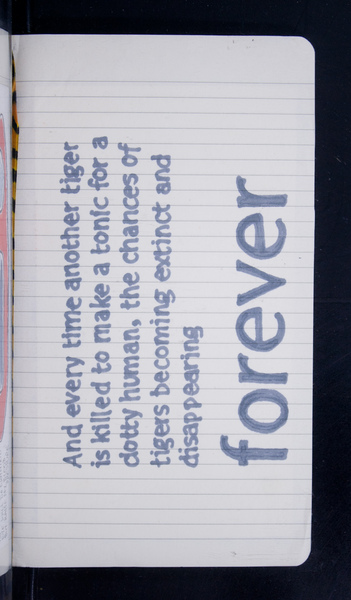 And every time another tiger
is killed to make a tonic for a
dotty human, the chances of
tigers becoming extinct and
disappearing
forever